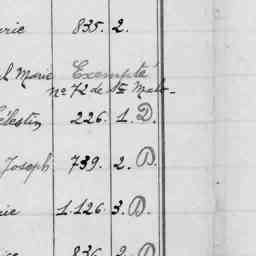 rie 835. 2.
l Marie Exempté
n° 72 de St Malo -
élestin 226. 1. D.
Joseph 739. 2. D.
ie 1.126. 3. D.
836 2 D